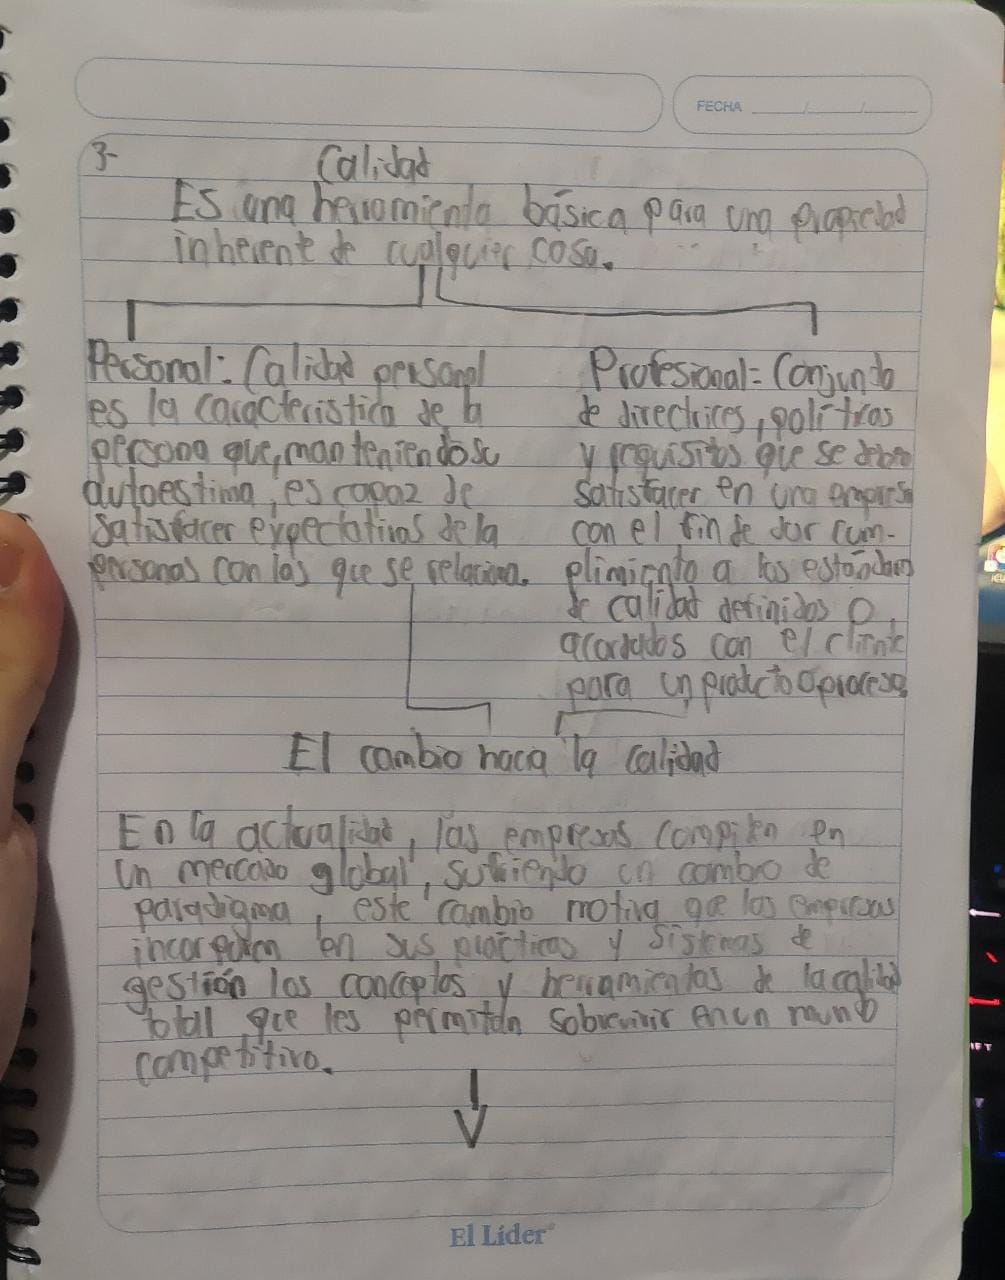 FECHA
3-
Calidad
Es una herramienta básica para una propiedad
inherente de cualquier cosa.
Personal: Calidad personal
es la caracteristica de la
persona que, manteniendo su
autoestima, es capaz de
satisfacer expectativas de la
personas con las que se relaciona.
Profesional = Conjunto
de directrices, políticas
y requisitos que se deben
satisfacer en una empresa
con el fin de dar cum-
plimiento a los estándares
de calidad definidos o
acordados con el cliente
para un producto o proceso
El cambio hacia la calidad
En la actualidad, las empresas compiten en
un mercado global, sufriendo un cambio de
paradigma, este cambio motiva que las empresas
incorporen en sus prácticas y sistemas de
gestión los conceptos y herramientas de la calidad
total que les permitan sobrevivir en un mundo
competitivo.
El Líder